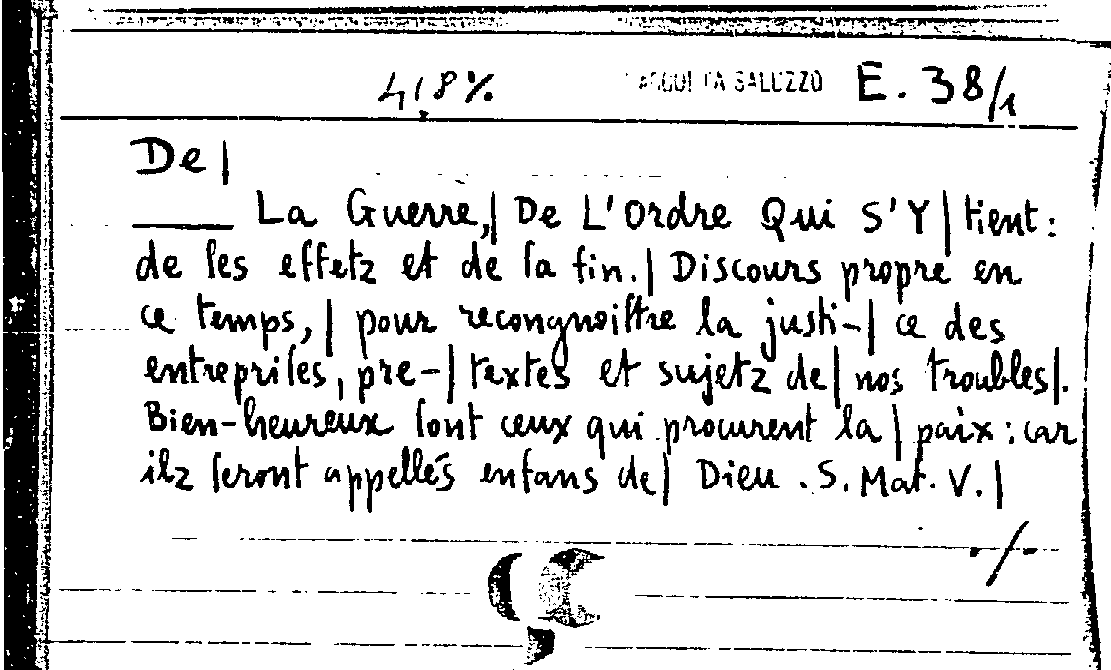 418% RACCOLTA SALUZZO E. 38/1
De |
La Guerre,| De L'Ordre Qui S'Y | tient :
de ſes effetz et de ſa fin.| Discours propre en
ce temps, | pour recongnoiſtre la justi-| ce des
entrepriſes, pre-| textes et sujetz de| nos troubles|.
Bien-heureux ſont ceux qui procurent la | paix : car
ilz ſeront appellés enfans de| Dieu . S. Mat. V.|
./.